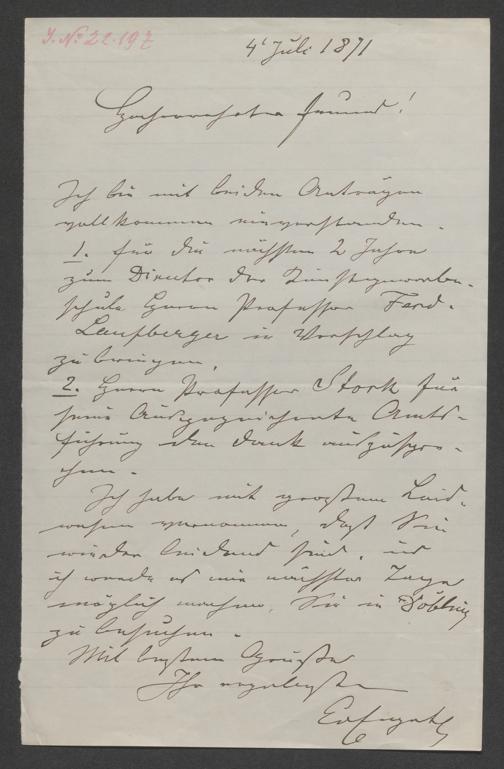 J. № 22·197
4t Juli 1871
Hochverehrter Freund!
Ich bin mit beiden Anträgen
vollkommen einverstanden.
1. für die nächsten 2 Jahre
zum Director der Kunstgewerbe-
schule Herrn Professor Ferd.
Laufberger in Vorschlag
zu bringen,
2. Herrn Professor Stork für
seine ausgezeichnete Amts-
führung den Dank auszuspre-
chen.
Ich habe mit großem Leid-
wesen vernommen, daß Sie
wieder leidend sind, und
ich werde es mir nächster Tage
möglich machen, Sie in Döbling
zu besuchen.
Mit bestem Gruße
Ihr ergebenster